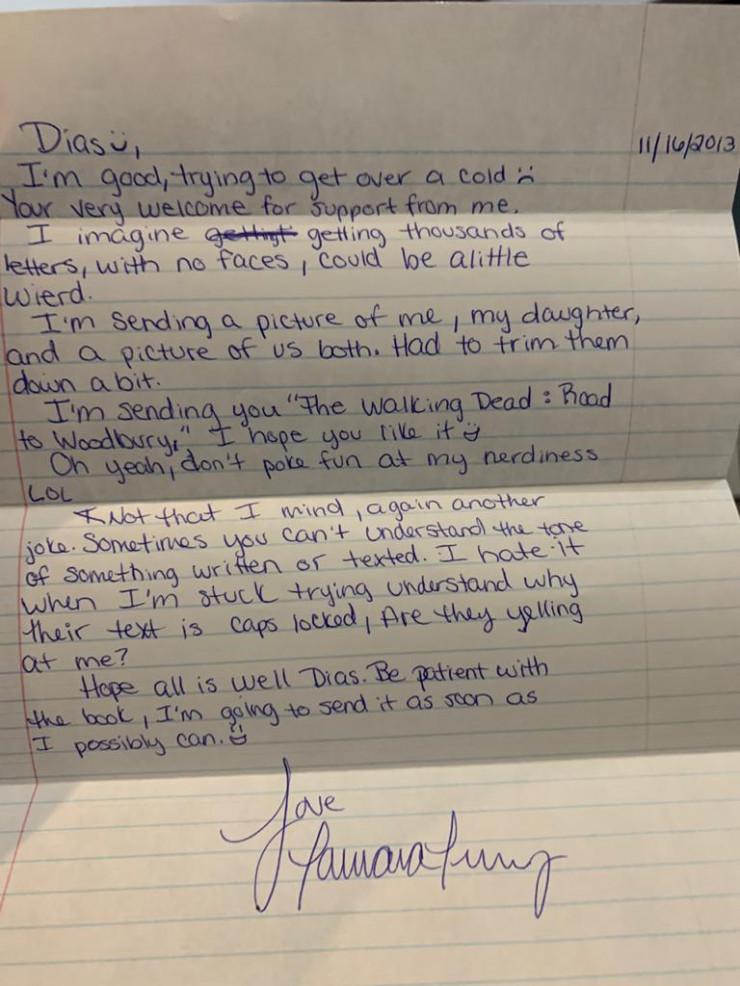 11/16/2013
Dias ü,
I'm good, trying to get over a cold :(
Your very welcome for support from me.
I imagine getting thousands of
letters, with no faces, could be alittle
wierd.
I'm sending a picture of me, my daughter,
and a picture of us both. Had to trim them
down a bit.
I'm sending you "The Walking Dead: Road
to Woodbury," I hope you like it :)
Oh yeah, don't poke fun at my nerdiness
LOL
Not that I mind, again another
joke. Sometimes you can't understand the tone
of something written or texted. I hate it
when I'm stuck trying understand why
their text is caps locked, Are they yelling
at me?
Hope all is well Dias. Be patient with
the book, I'm going to send it as soon as
I possibly can. :)
Love